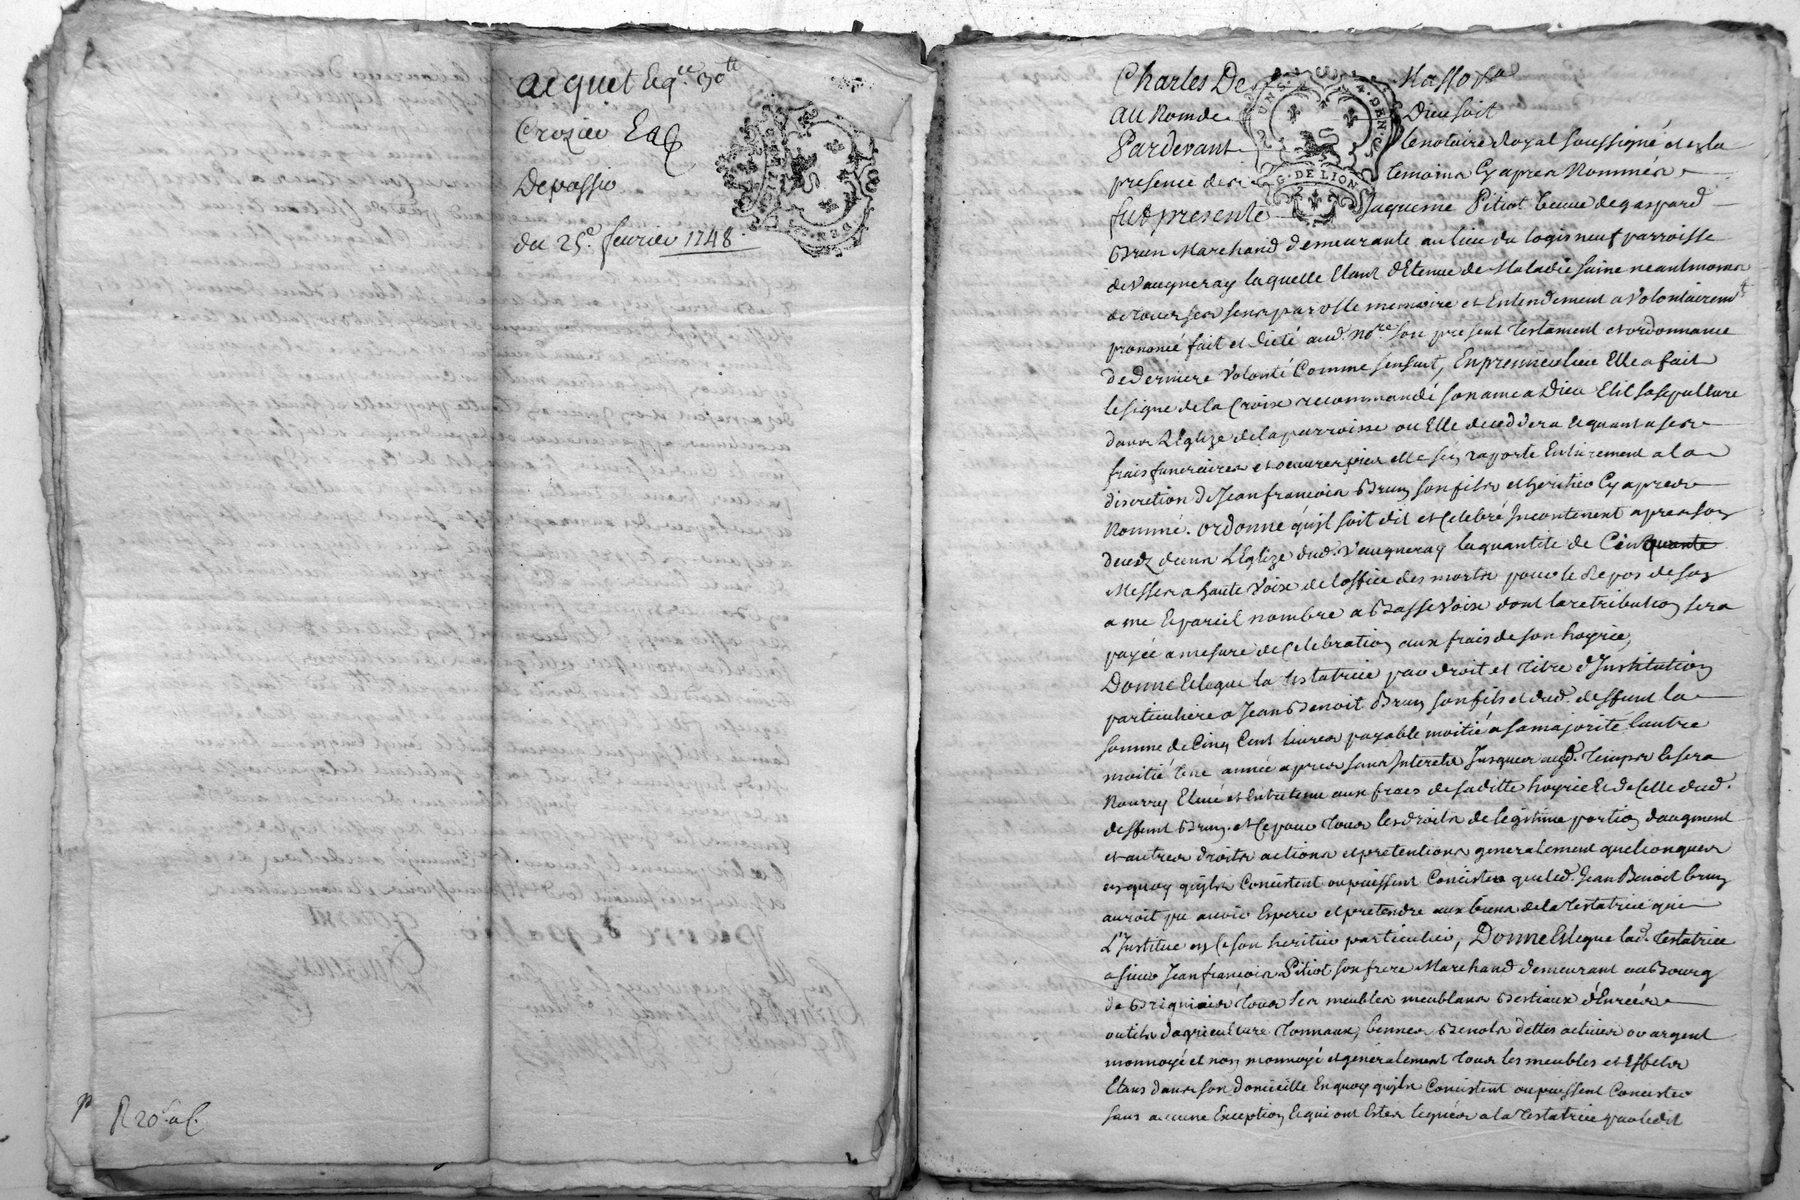 acquet &q.ce 30th
Crozier
Depassio
du 25e. feurier 1748
R 20s. a C.
Charles De Massossa
GN. DE LION
au Nom de Dieu soit
Pardevant Le notaire Royal soussigné et en la
presence des temoins Cyapres Nommés
fut presente Jaqueme Pitiot veuve de gaspard
Brun Marchand demeurante au lieu du logis neuf parroisse
de vaugneray laquelle Etant detenue de Maladie saine neantmoins
de tous ses sens parolle memoire et Entendement a volontairemt
prononcé fait et dicté aud. nore. son present testament et ordonnance
de derniere volonté Comme sensuit, En premier lieu Elle a fait
le signe de la Croix recommandé son ame a Dieu Elit sa sepulture
dans L'Eglize de la parroisse ou Elle deceddera Equant a ses
frais funeraires et oeuvres pies elle sen raporte Entierement a la
discretion de Jean francois Brun son fils et heritier Cyapres
Nommé. ordonne quil soit dit et Celebré Incontinent apres son
decedz dans L'Eglize dud. vaugneray la quantité de Cinquante
Messes a haute voix de loffice des morts pour le Repos de son
ame Epareil nombre a Basse voix dont la retribution sera
payée a mesure de Celebration aux frais de son hoyrie,
Donne Elegue la testatrice par droit et titre d'Institution
particuliere a Jean Benoit Brun son fils et dud. deffunt la
somme de Cinq Cent livres payable moitié a sa majorité l'autre
moitié une année apres sans Interets Jusques aud. temps le sera
Nourry Elevé et Entretenu aux frais de saditte hoyrie Ede Celle dud.
deffunt Brun. et Ce pour tous les droits de legitime portion daugment
et autres droits actions et pretentions generalement quelconques
en quoy quils Concistent ou puissent Concister que led. Jean Benoit brun
auroit pu avoir Esperer et pretendre aux biens de la testatrice que
L'Institue en Ce son heritier particulier, Donne Elegue lad. testatrice
a sieur Jean francois Pitiot son frere Marchand demeurant au Bourg
de Brignais tous ses meubles meublans Bestiaux d'Enrées
outils dagriculture tonnaux, bennes Benots dettes actives ou argent
monnoyé et non monnoyé et generalement tous les meubles et Effets
Etans dans son domicille En quoy quils Concistent ou puissent Concister
sans aucune Exception Equi ont Estes legués a la testatrice par ledit